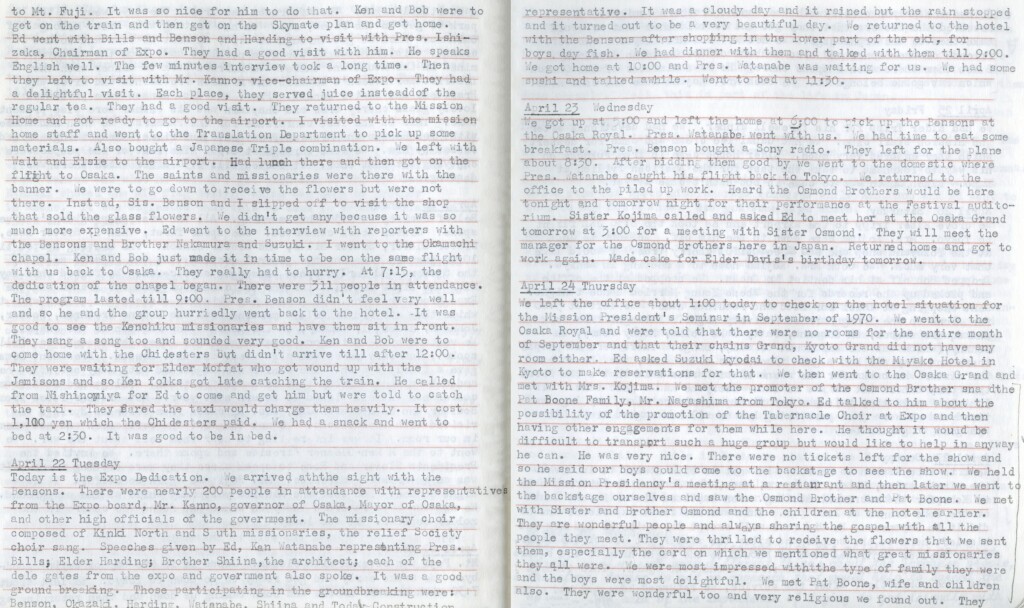 to Mt. Fuji.  It was so nice for him to do that.  Ken and Bob were to
get on the train and then get on the Skymate plan and get home.
Ed went with Bills and Benson and Harding to visit with Pres. Ishi-
zaka, Chairman of Expo.  They had a good visit with him.  He speaks
English well.  The few minutes interview took a long time.  Then
they left to visit with Mr. Kanno, vice-chairman of Expo.  They had
a delightful visit.  Each place, they served juice insteadof the
regular tea.  They had a good visit.  They returned to the Mission
Home and got ready to go to the airport.  I visited with the mission
home staff and went to the Translation Department to pick up some
materials.  Also bought a Japanese Triple combination.  We left with
Walt and Elzie to the airport.  Had lunch there and then got on the
flight to Osaka.  The saints and missionaries were there with the
banner.  We were to go down to receive the flowers but were not
there.  Instead, Sis. Benson and I slipped off to visit the shop
that sold the glass flowers.  We didn't get any because it was so
much more expensive.  Ed went to the interview with reporters with
the Bensons and Brother Nakamura and Suzuki.  I went to the Okamachi
chapel.  Ken and Bob just made it in time to be on the same flight
with us back to Osaka.  They really had to hurry.  At 7:15, the
dedication of the chapel began.  There were 311 people in attendance.
The program lasted till 9:00.  Pres. Benson didn't feel very well
and so he and the group hurriedly went back to the hotel.  It was
good to see the Kenchiku missionaries and have them sit in front.
They sang a song too and sounded very good.  Ken and Bob were to
come home with the Chidesters but didn't arrive till after 12:00.
They were waiting for Elder Moffat who got wound up with the
Jamisons and so Ken folks got late catching the train.  He called
from Nishinomiya for Ed to come and get him but were told to catch
the taxi.  They feared the taxi would charge them heavily.  It cost
1,100 yen which the Chidesters paid.  We had a snack and went to
bed at 2:30.  It was good to be in bed.
April 22 Tuesday
Today is the Expo Dedication.  We arrived aththe sight with the
Bensons.  There were nearly 200 people in attendance with representatives
from the Expo board, Mr. Kanno, governor of Osaka, Mayor of Osaka,
and other high officials of the government.  The missionary choir
composed of Kinki North and S uth missionaries, the relief Society
choir sang.  Speeches given by Ed, Ken Watanabe representing Pres.
Bills; Elder Harding; Brother Shiina,the architect; each of the
dele gates from the expo and government also spoke.  It was a good
ground breaking.  Those participating in the groundbreaking were:
Benson, Okazaki, Harding, Watanabe, Shiina and Construction
representative.  It was a cloudy day and it rained but the rain stopped
and it turned out to be a very beautiful day.  We returned to the hotel
with the Bensons after shopping in the lower part of the eki, for
boys day fish.  We had dinner with them and talked with them till 9:00.
We got home at 10:00 and Pres. Watanabe was waiting for us.  We had some
sushi and talked awhile.  Went to bed at 11:30.
April 23  Wednesday
We got up at :00 and left the home at 6:00 to pick up the Bensons at
the Osaka Royal.  Pres. Watanabe went with us.  We had time to eat some
breakfast.  Pres. Benson bought a Sony radio.  They left for the plane
about 8:30.  After bidding them good by we went to the domestic where
Pres. Watanabe caught his flight back to Tokyo.  We returned to the
office to the piled up work.  Heard the Osmond Brothers would be here
tonight and tomorrow night for their performance at the Festival audito-
rium.  Sister Kojima called and asked Ed to meet her at the Osaka Grand
tomorrow at 3:00 for a meeting with Sister Osmond.  They will meet the
manager for the Osmond Brothers here in Japan.  Returned home and got to
work again.  Made cake for Elder Davis's birthday tomorrow.
April 24 Thursday
We left the office about 1:00 today to check on the hotel situation for
the Mission President's Seminar in September of 1970.  We went to the
Osaka Royal and were told that there were no rooms for the entire month
of September and that their chains Grand, Kyoto Grand did not have any
room either.  Ed asked Suzuki kyodai to check with the Miyako Hotel in
Kyoto to make reservations for that.  We then went to the Osaka Grand and
met with Mrs. Kojima.  We met the promoter of the Osmond Brother sna dthe
Pat Boone Family, Mr. Nagashima from Tokyo. Ed talked to him about the
possibility of the promotion of the Tabernacle Choir at Expo and then
having other engagements for them while here.  He thought it would be
difficult to transport such a huge group but would like to help in anyway
he can.  He was very nice.  There were no tickets left for the show and
so he said our boys could come to the backstage to see the show.  We held
the Mission Presidency's meeting at a restaurant and then later we went to
the backstage ourselves and saw the Osmond Brother and Pat Boone.  We met
with Sister and Brother Osmond and the children at the hotel earlier.
They are wonderful people and always sharing the gospel with all the
people they meet. They were thrilled to redeive the flowers that we sent
them, especially the card on which we mentioned what great missionaries
they all were.  We were most impressed with the type of family they were
and the boys were most delightful.  We met Pat Boone, wife and children
also.  They were wonderful too and very religious we found out.  They